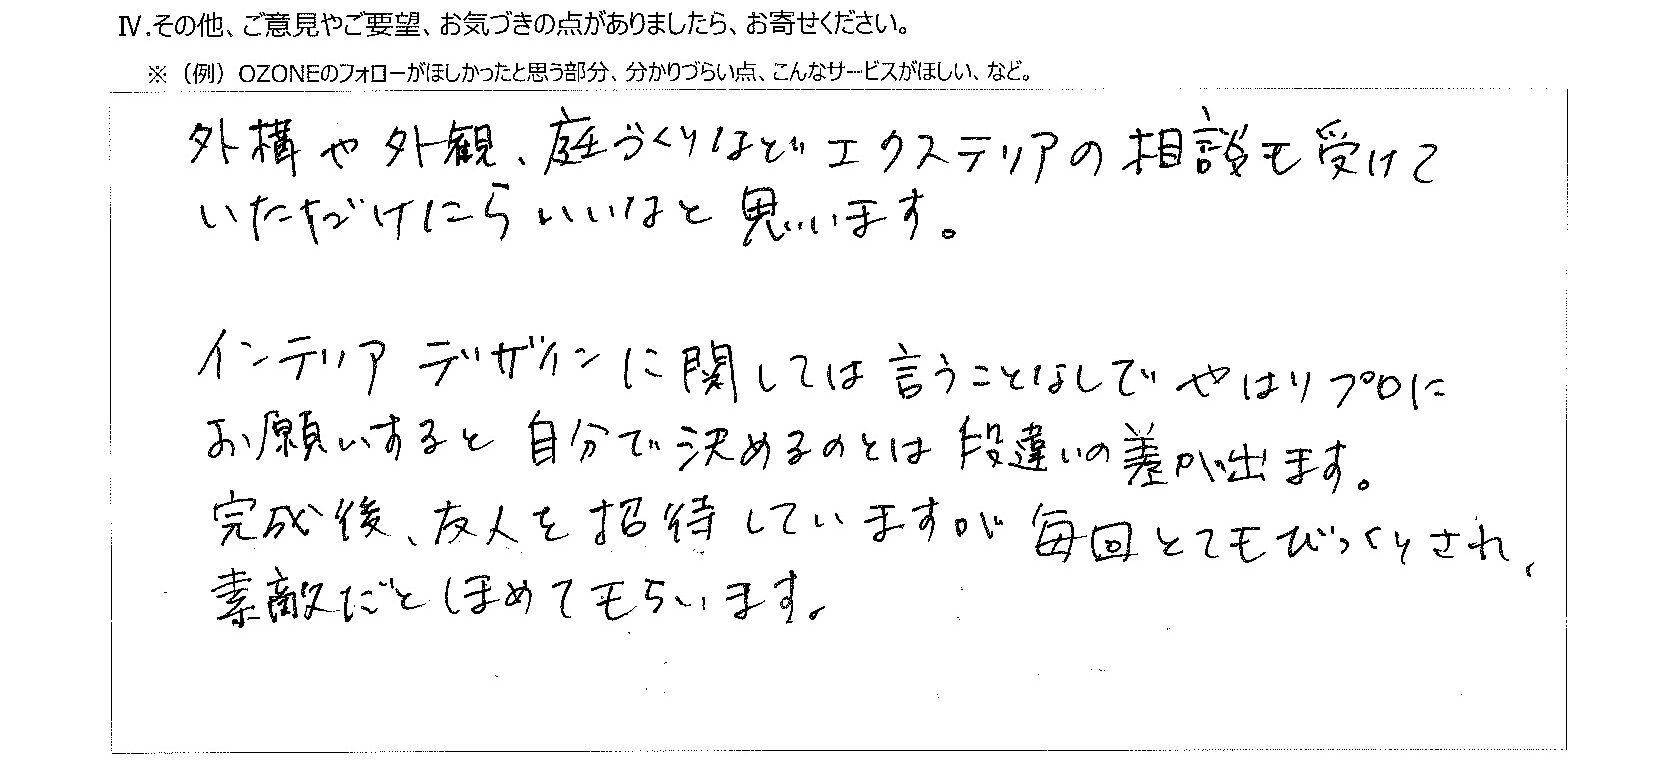 Ⅳ.その他、ご意見やご要望、お気づきの点がありましたら、お寄せください。
※（例）OZONEのフォローがほしかったと思う部分、分かりづらい点、こんなサービスがほしい、など。
外構や外観、庭づくりなどエクステリアの相談も受けて
いただけたらいいなと思います。
インテリアデザインに関しては言うことなしでやはりプロに
お願いすると自分で決めるのとは段違いの差が出ます。
完成後、友人を招待していますが毎回とてもびっくりされ、
素敵だとほめてもらいます。